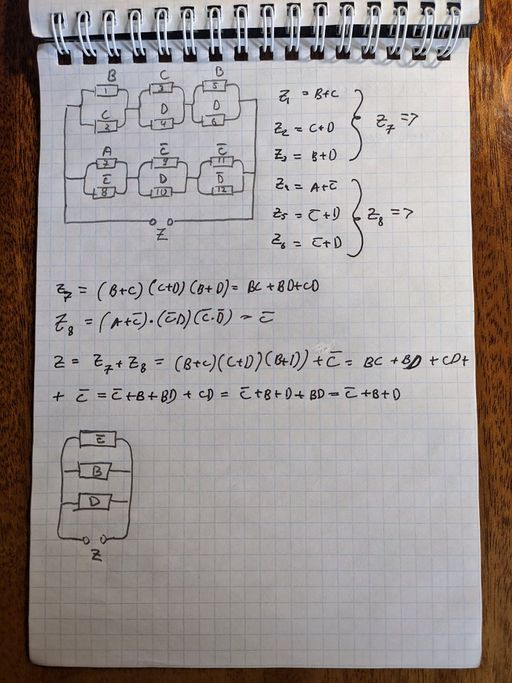 B C B
1 2 5
C D D
3 4 6
A C̅ C̅
7 9 11
C̅ D D̅
8 10 12
Z
Z₁ = B+C
Z₂ = C+D
Z₃ = B+D
Z₇ =>
Z₄ = A+C̅
Z₅ = C̅+D
Z₆ = C̅+D
Z₈ =>
Z₇ = (B+C)(C+D)(B+D) = BC+BD+CD
Z₈ = (A+C̅)·(C̅D)(C̅·D̅) = C̅
Z = Z₇+Z₈ = (B+C)(C+D)(B+D))+C̅ = BC+BD+CD+
+ C̅ = C̅+B+BD+CD = C̅+B+D+BD = C̅+B+D
C̅
B
D
Z